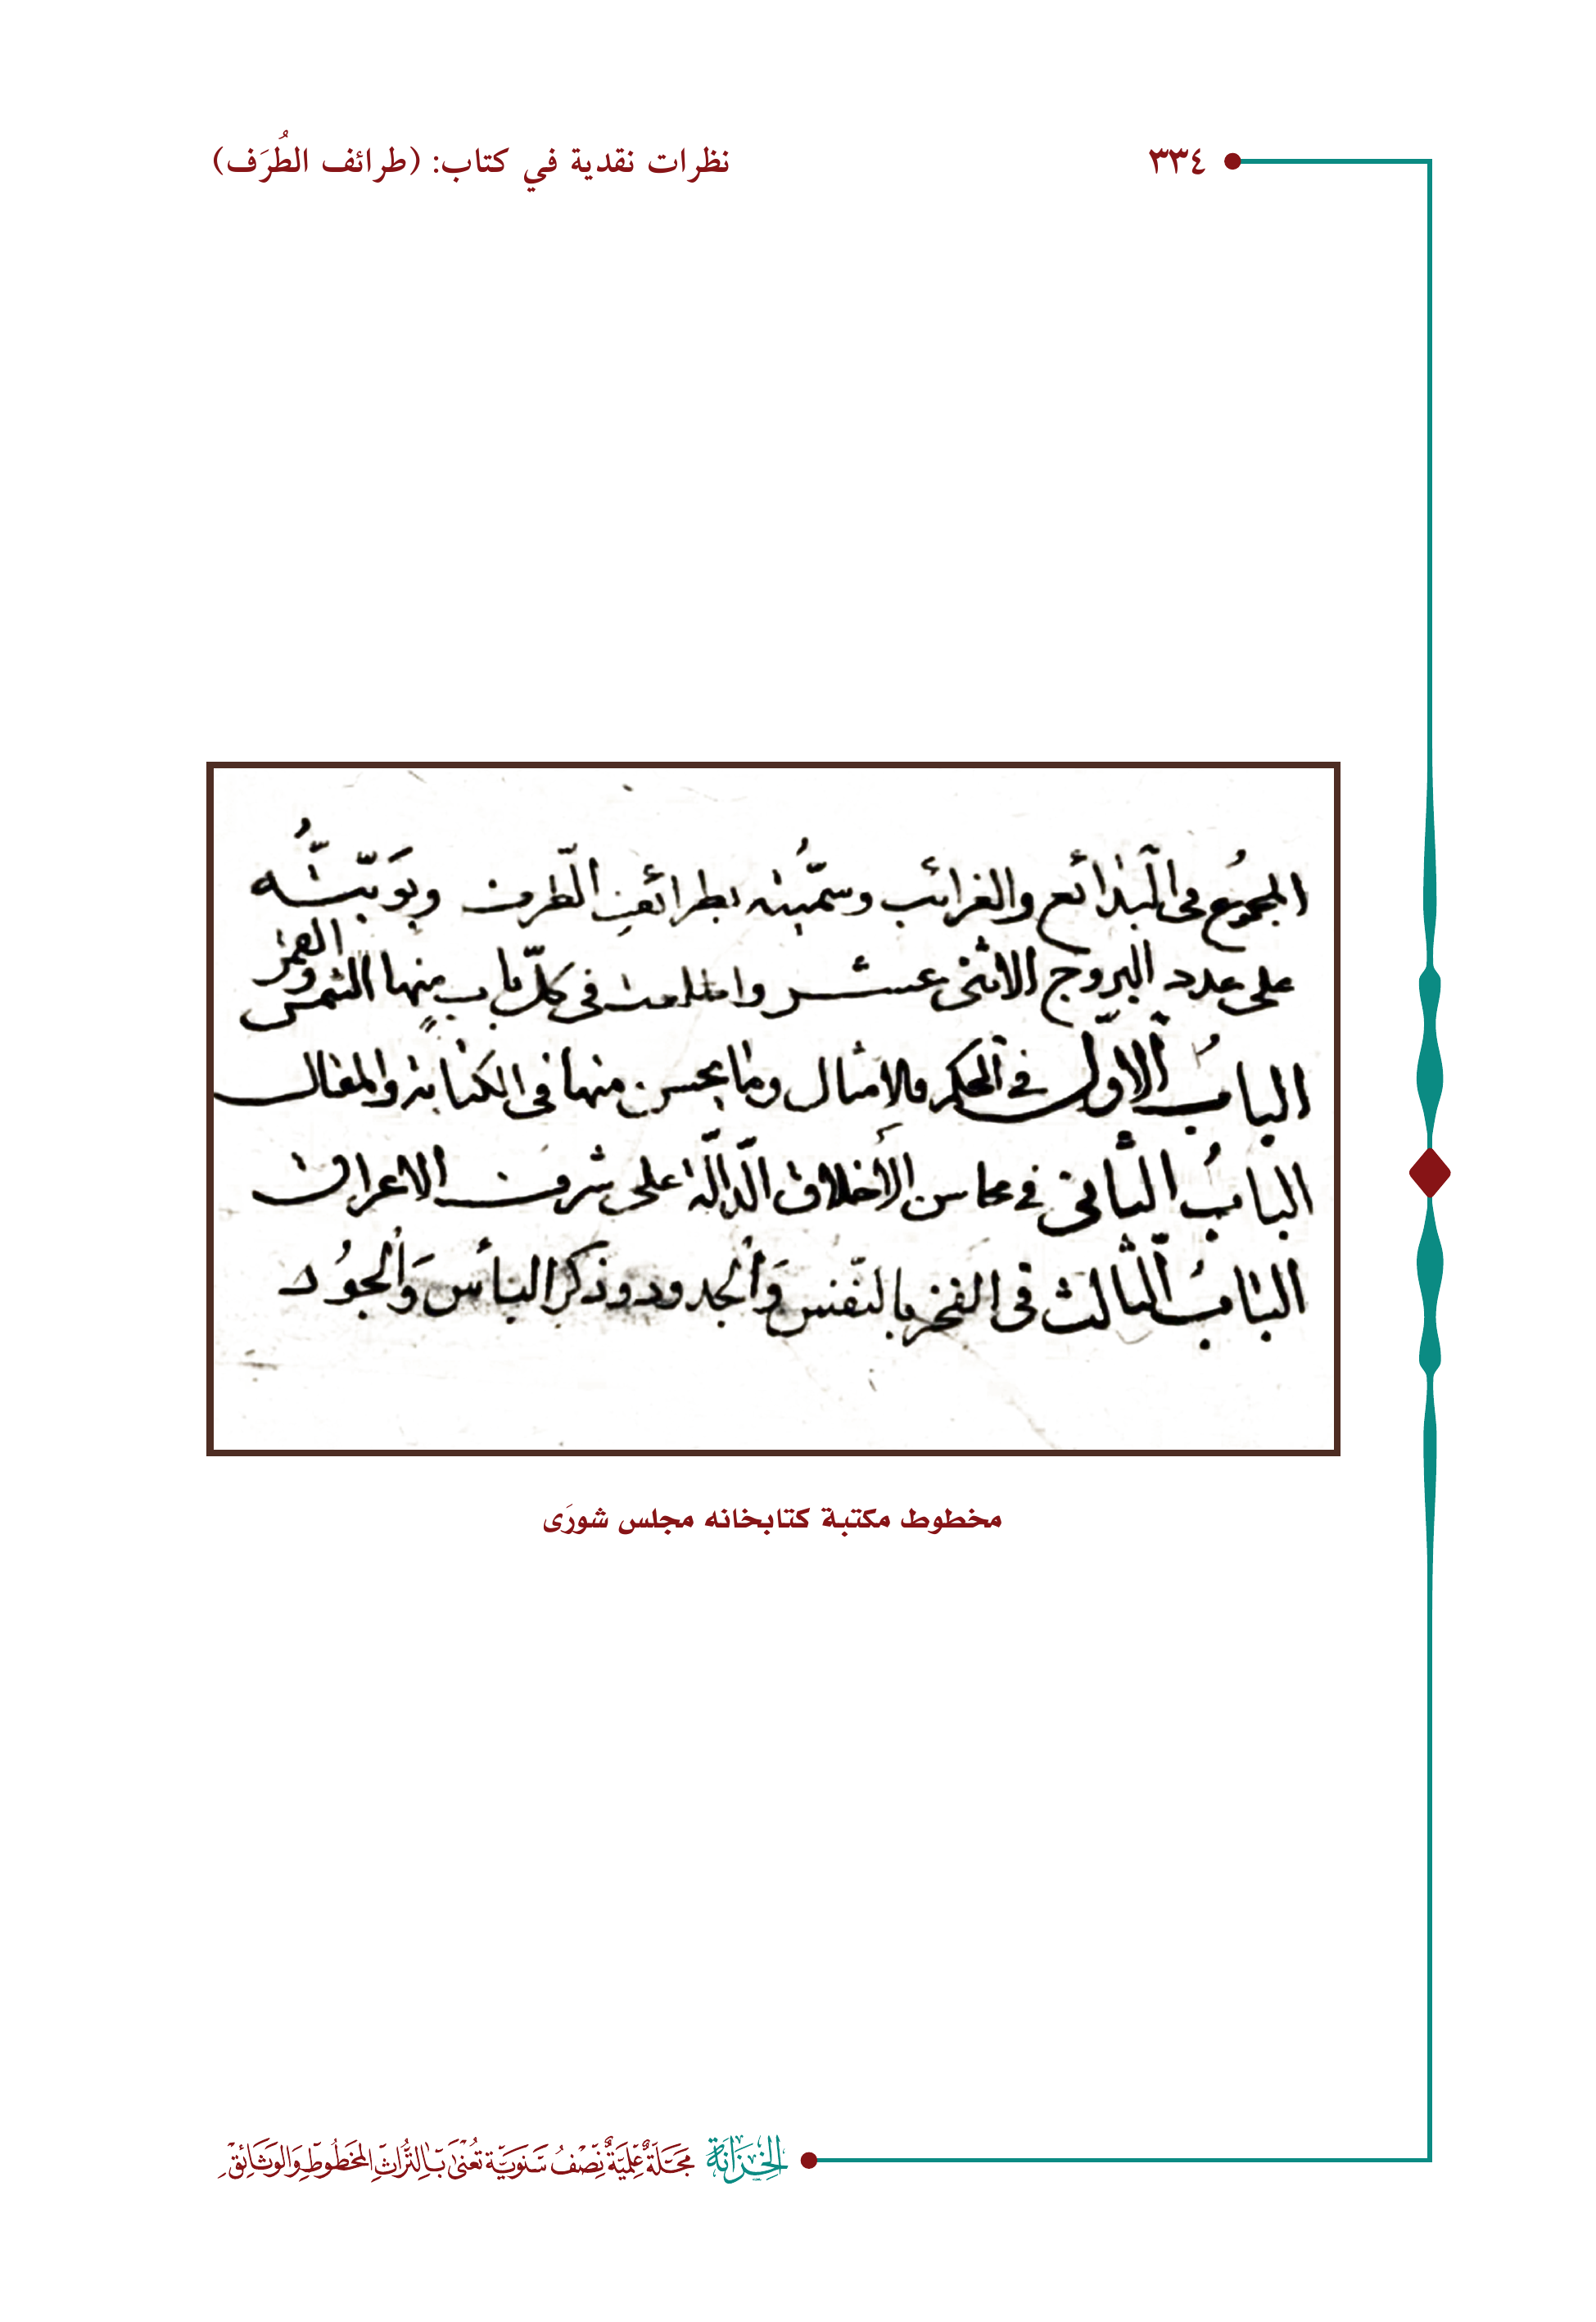 ٣٣٤
نظرات نقدية في كتاب: (طرائف الطُرَف)
المجموُع في الَبدائع والغرائب وسمّيُته بطرائف الطّرف وبَوبّتّهُ
على عدد البروج الاثنى عشر في كلّ باب منها الشمس والقمر
البابُ الاوّل في الحكم والامثال وما يحسن منها فى الكتابة والمقال
البابُ الثّانى في محاسن الأخلاق الدّالّة على شرف الاعراق
البابُ الثّالث فى الفخر بالنّفس وَالجدود وذكر البأس وَالجوُد
مخطوط مكتبة كتابخانه مجلس شورَى
الخِزَانَة مَجَلَّةٌ عِلمِيَّةٌ نِصْفُ سَنَوِيَّة تُعْنَىٰ بِالتُّرَاثِ المَخطُوطِ وَالوَثَائِقِ